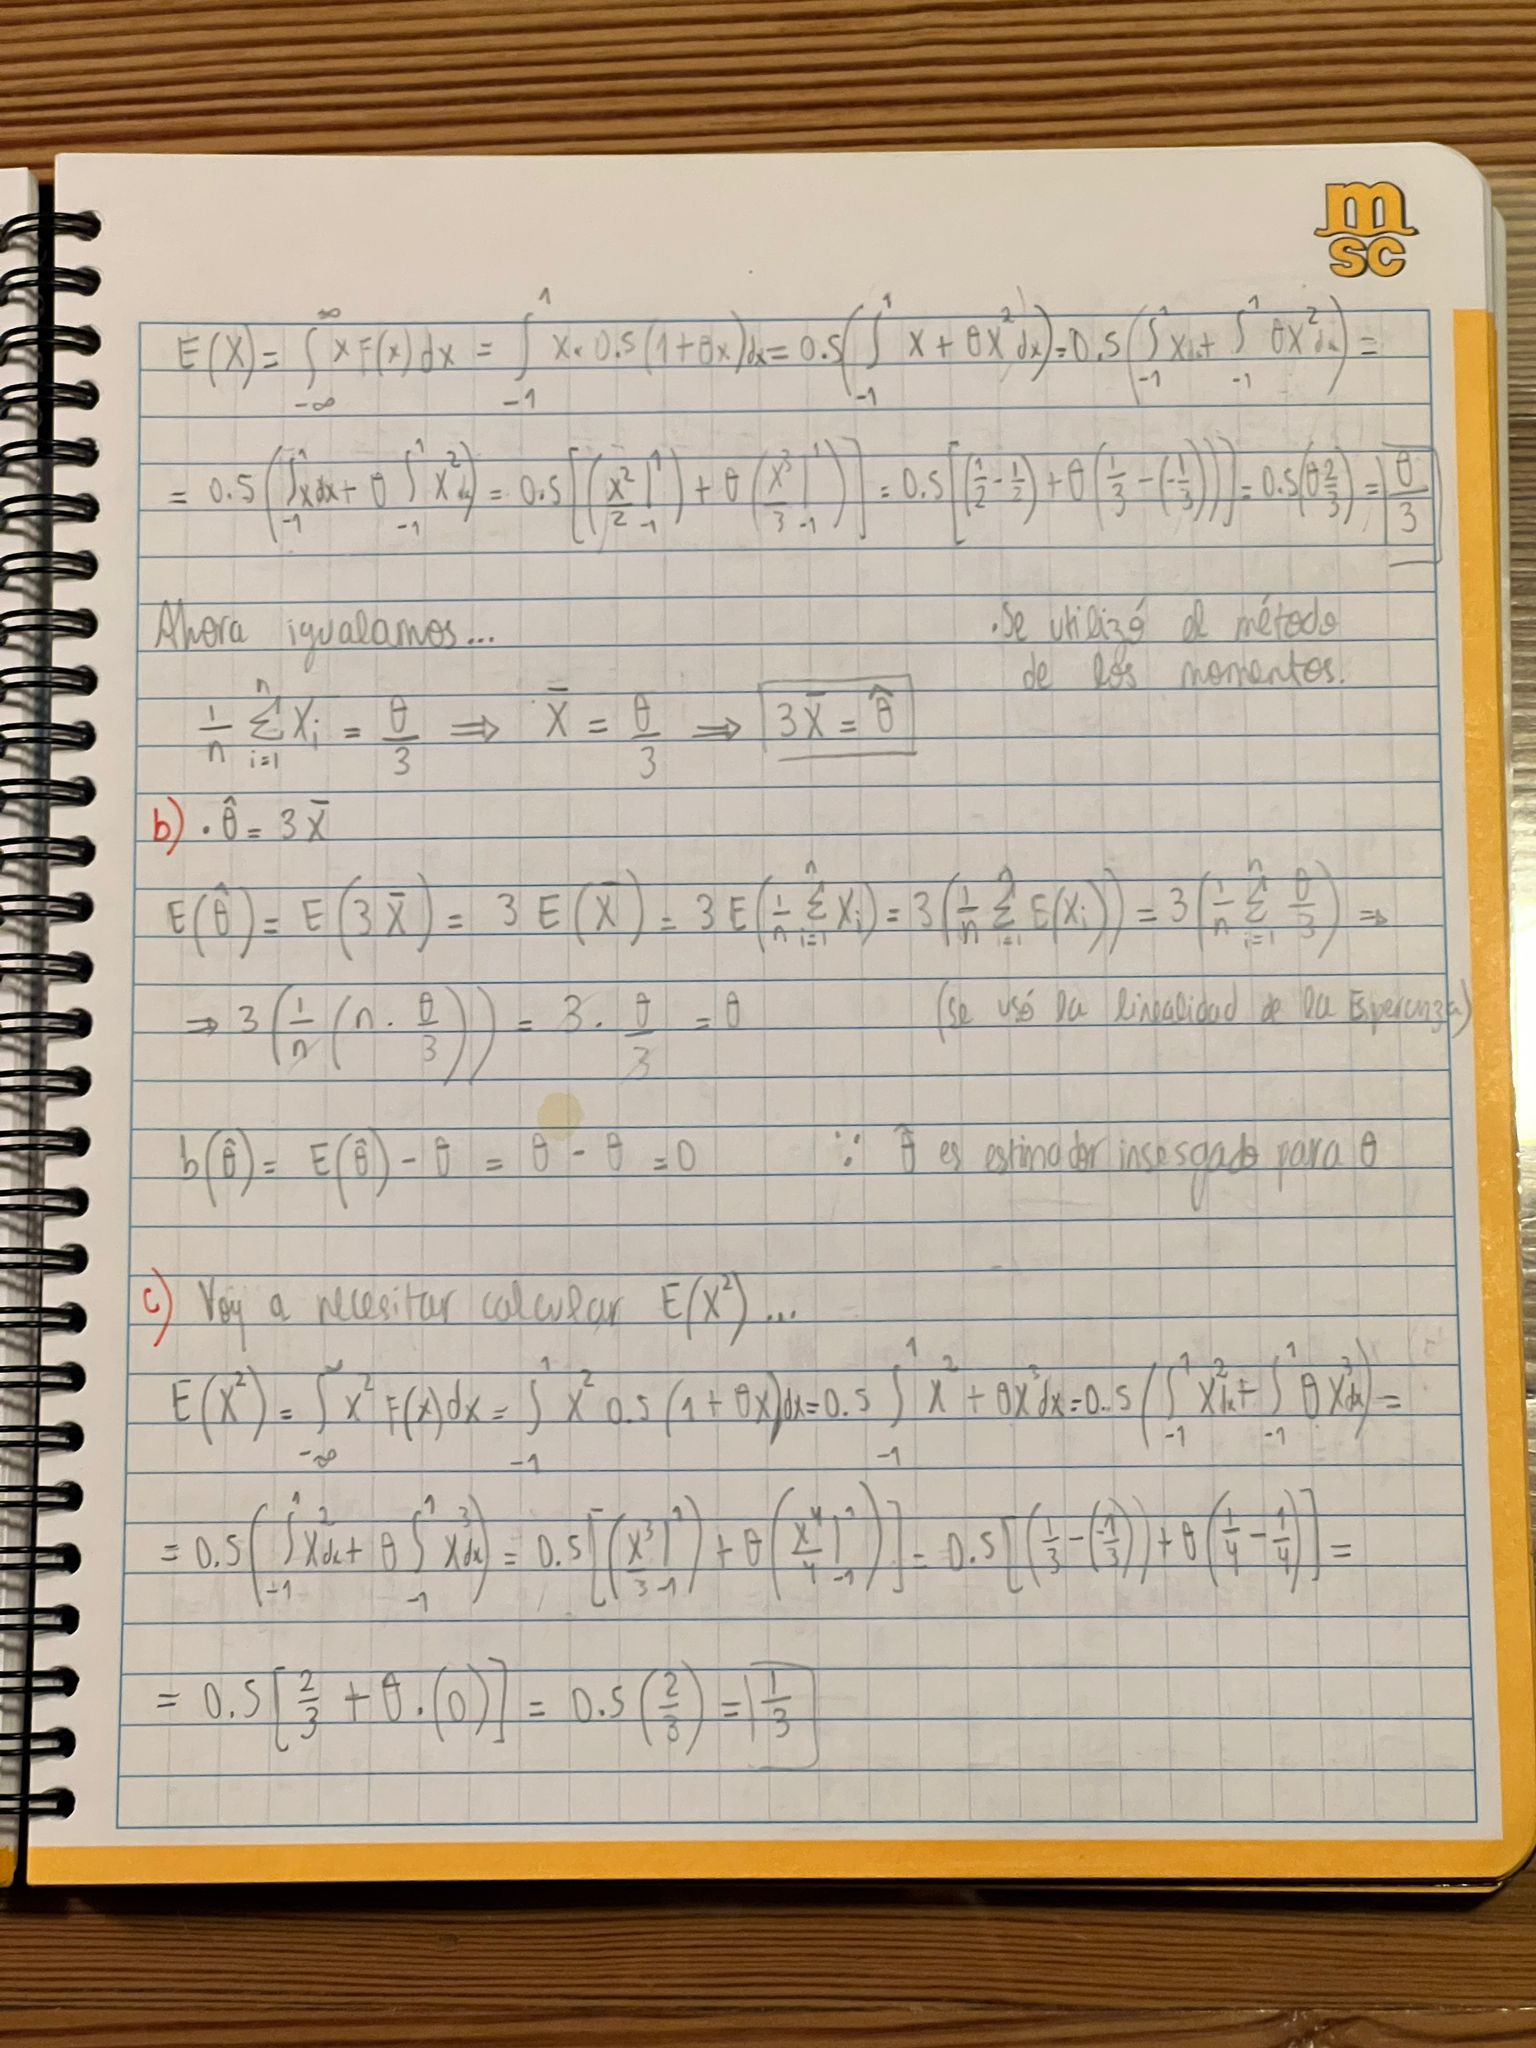 m
sc
E(X) = ∫_{-∞}^{∞} x F(x) dx = ∫_{-1}^{1} x · 0.5 (1+θx) dx = 0.5 (∫_{-1}^{1} x + θx² dx) = 0.5 (∫_{-1}^{1} x dx + ∫_{-1}^{1} θx² dx) =
= 0.5 (∫_{-1}^{1} x dx + θ ∫_{-1}^{1} x² dx) = 0.5 [(x²/2 |_{-1}^{1}) + θ (x³/3 |_{-1}^{1})] = 0.5 [(1/2 - 1/2) + θ (1/3 - (-1/3))] = 0.5 (θ 2/3) = θ/3
Ahora igualamos... · Se utilizó el método
de los momentos.
1/n Σ_{i=1}^{n} Xi = θ/3 ⟹ X̄ = θ/3 ⟹ 3X̄ = θ̂
b) · θ̂ = 3X̄
E(θ̂) = E(3X̄) = 3 E(X̄) = 3 E(1/n Σ_{i=1}^{n} Xi) = 3 (1/n Σ_{i=1}^{n} E(Xi)) = 3 (1/n Σ_{i=1}^{n} θ/3) ⇒
⇒ 3 (1/n (n · θ/3)) = 3 · θ/3 = θ (Se usó la linealidad de la Esperanza)
b(θ̂) = E(θ̂) - θ = θ - θ = 0 ∵ θ̂ es estimador insesgado para θ
c) Voy a necesitar calcular E(X²)...
E(X²) = ∫_{-∞}^{∞} x² F(x) dx = ∫_{-1}^{1} x² 0.5 (1+θx) dx = 0.5 ∫_{-1}^{1} x² + θx³ dx = 0.5 (∫_{-1}^{1} x² dx + ∫_{-1}^{1} θx³ dx) =
= 0.5 (∫_{-1}^{1} x² dx + θ ∫_{-1}^{1} x³ dx) = 0.5 [(x³/3 |_{-1}^{1}) + θ (x⁴/4 |_{-1}^{1})] = 0.5 [(1/3 - (-1/3)) + θ (1/4 - 1/4)] =
= 0.5 [2/3 + θ · (0)] = 0.5 (2/3) = 1/3